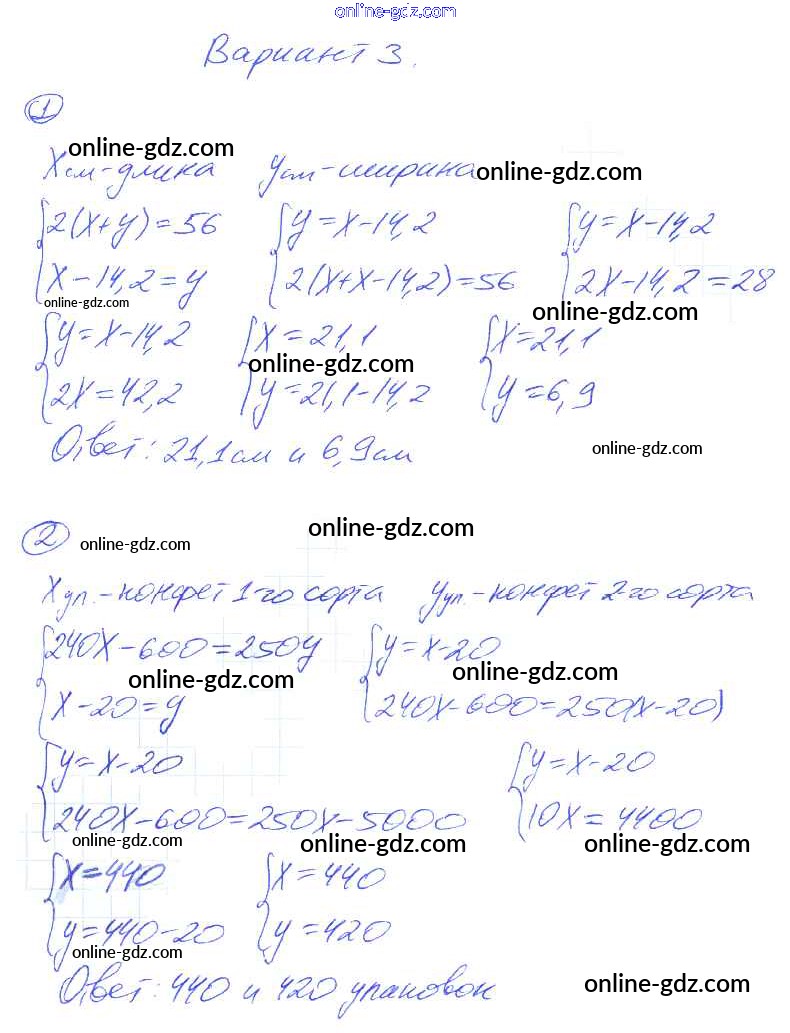 online-gdz.com
Вариант 3.
1
online-gdz.com
X см - длина   y см - ширина online-gdz.com
{2(x+y)=56   {y=x-14,2   {y=x-14,2
{x-14,2=y   {2(x+x-14,2)=56   {2x-14,2=28
online-gdz.com   online-gdz.com
{y=x-14,2   {x=21,1   {x=21,1
online-gdz.com
{2x=42,2   {y=21,1-14,2   {y=6,9
Ответ: 21,1 см и 6,9 см   online-gdz.com
2   online-gdz.com   online-gdz.com
X уп. - конфет 1-го сорта   y уп. - конфет 2-го сорта
{240x-600=250y   {y=x-20
online-gdz.com   online-gdz.com
{x-20=y   {240x-600=250(x-20)
{y=x-20   {y=x-20
{240x-600=250x-5000   {10x=4400
online-gdz.com   online-gdz.com   online-gdz.com
{x=440   {x=440
{y=440-20   {y=420
online-gdz.com
Ответ: 440 и 420 упаковок   online-gdz.com